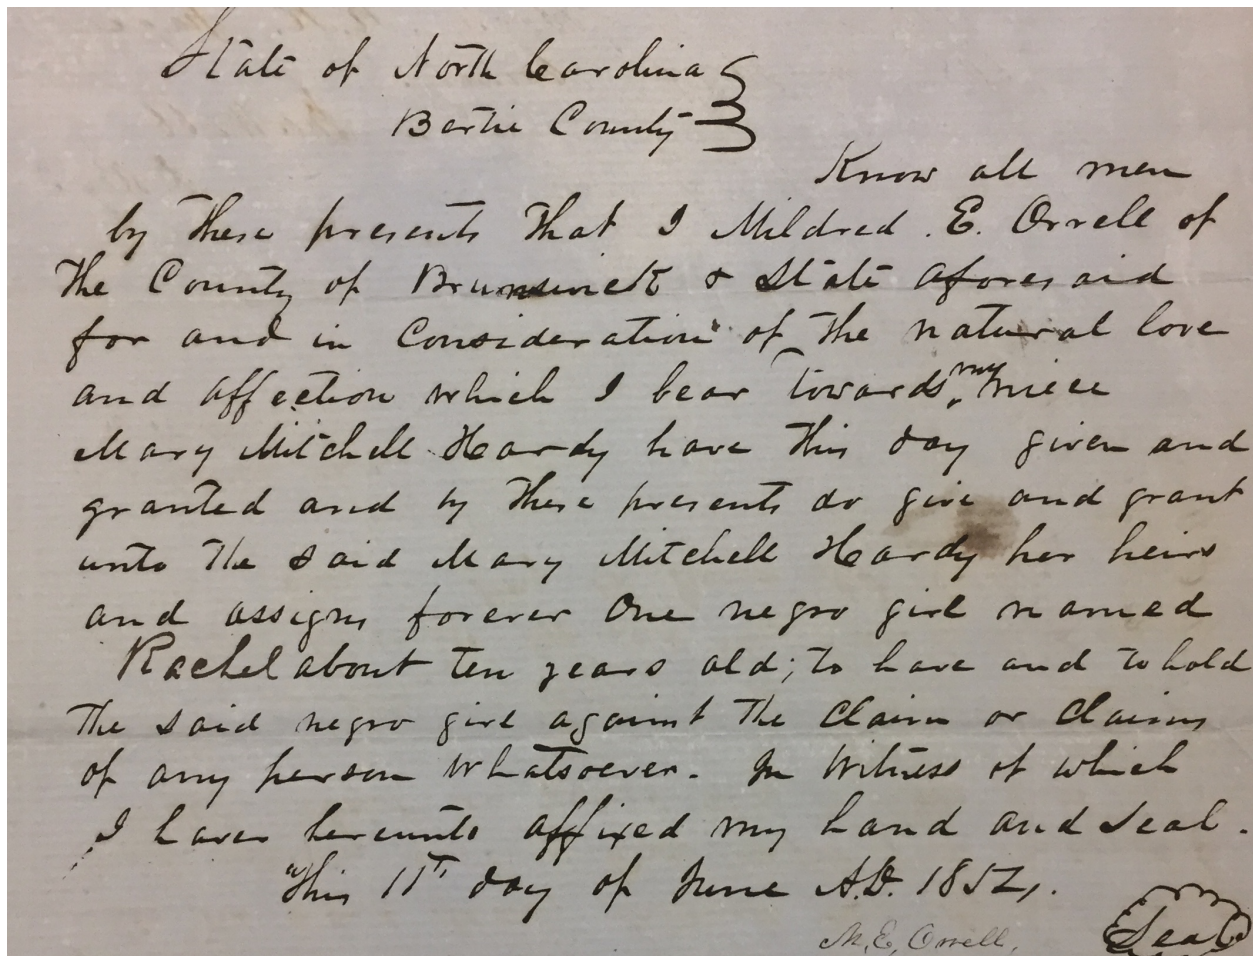 State of North Carolina
Bertie County
Know all men
by these presents that I Mildred E. Orrell of
the County of Brunswick & State aforesaid
for and in Consideration of the natural love
and affection which I bear towards my niece
Mary Mitchell Hardy have this day given and
granted and by these presents do give and grant
unto the said Mary Mitchell Hardy her heirs
and assigns forever One negro girl named
Rachel about ten years old; to have and to hold
the said negro girl against the Claim or Claims
of any person whatsoever. In Witness of which
I have hereunto affixed my hand and Seal.
This 11th day of June A.D. 1852.
M. E. Orrell. Seal